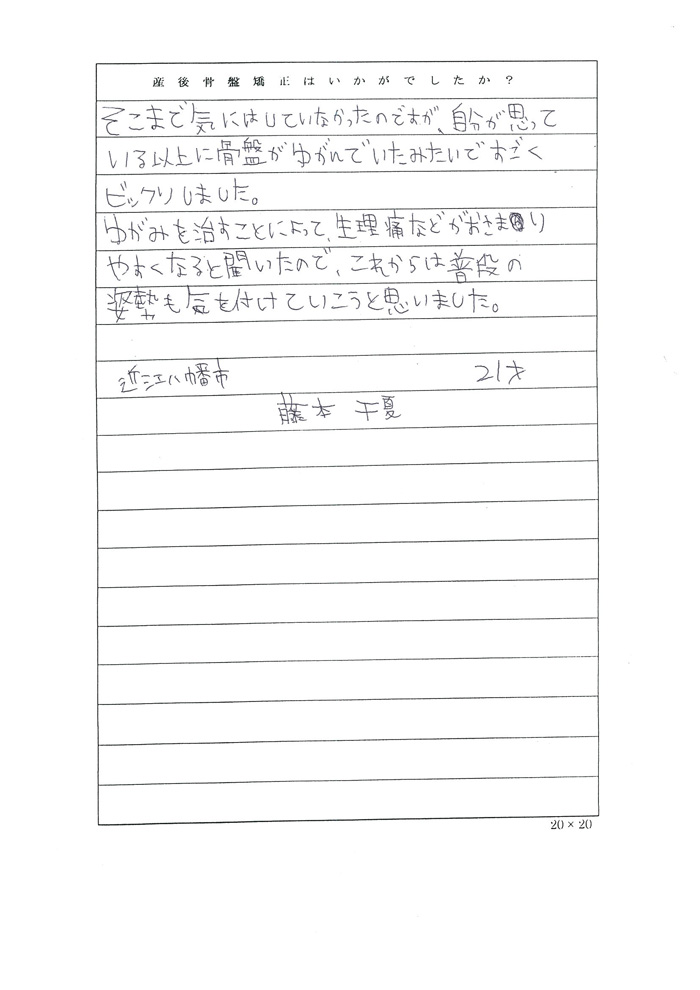 産後骨盤矯正はいかがでしたか？
そこまで気にはしていなかったのですが、自分が思って
いる以上に骨盤がゆがんでいたみたいですごく
ビックリしました。
ゆがみを治すことによって、生理痛などがおさまり
やすくなると聞いたので、これからは普段の
姿勢も気を付けていこうと思いました。
近江八幡市 21才
藤本 千夏
20×20